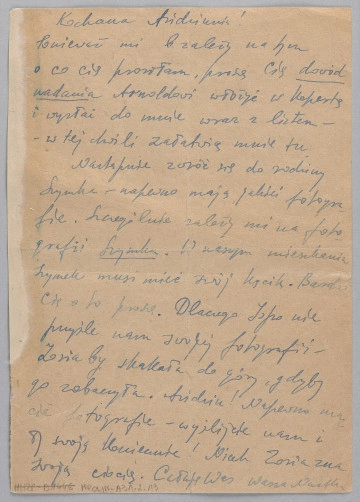 Kochana Asidziuniu!
Ponieważ mi b. zależy na tym
o co Cię prosiłam, proszę Cię dowód
nadania Arnoldowi włożyć w kopertę
i wysłać do mnie wraz z listem –
– w tej chwili załatwią mnie tu
Następnie zwróć się do rodziny
Szymka – napewno mają jakieś fotogra-
fie. Szczególnie zależy mi na foto
grafii Szymka. W naszym mieszkaniu
Szymek musi mieć swój kącik. Bardzo
Cię o to proszę. Dlaczego nie
przyśle nam swojej fotografii –
Zosia by skakała do góry gdyby
go zobaczyła. Napewno
fotografie – wyślijcie nam i
Ty swoją koniecznie! Niech Zosia zna
swoją ciocię. Całuję Was Wasza